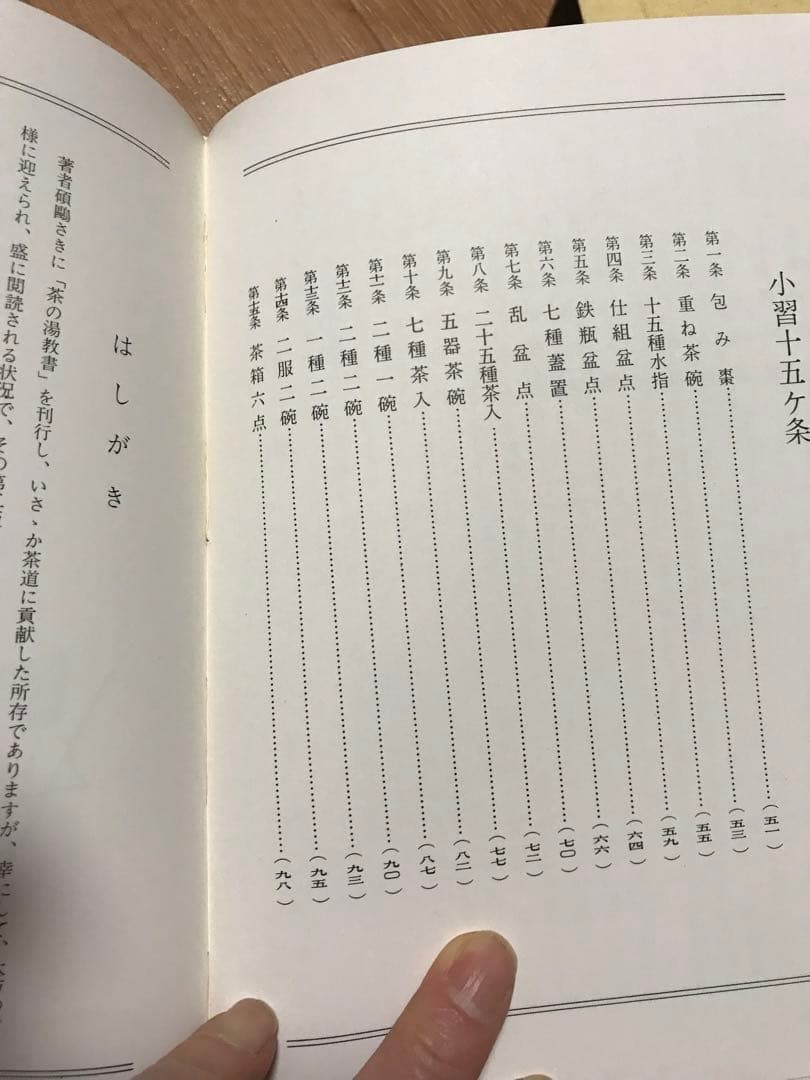 小習十五ケ条……(五一)
第一条 包み棗……(五三)
第二条 重ね茶碗……(五五)
第三条 十五種水指……(五九)
第四条 仕組盆点……(六四)
第五条 鉄瓶盆点……(六六)
第六条 七種蓋置……(七〇)
第七条 乱盆点……(七二)
第八条 二十五種茶入……(七七)
第九条 五器茶碗……(八二)
第十条 七種茶入……(八七)
第十一条 二種一碗……(九〇)
第十二条 二種二碗……(九三)
第十三条 一種二碗……(九五)
第十四条 二服二碗……(九六)
第十五条 茶箱六点……(九八)
はしがき
著者碩鷗さきに「茶の湯教書」を刊行し、いさゝか茶道に貢献した所存でありますが、幸にして、
様に迎えられ、盛に閲読される状況で、その第